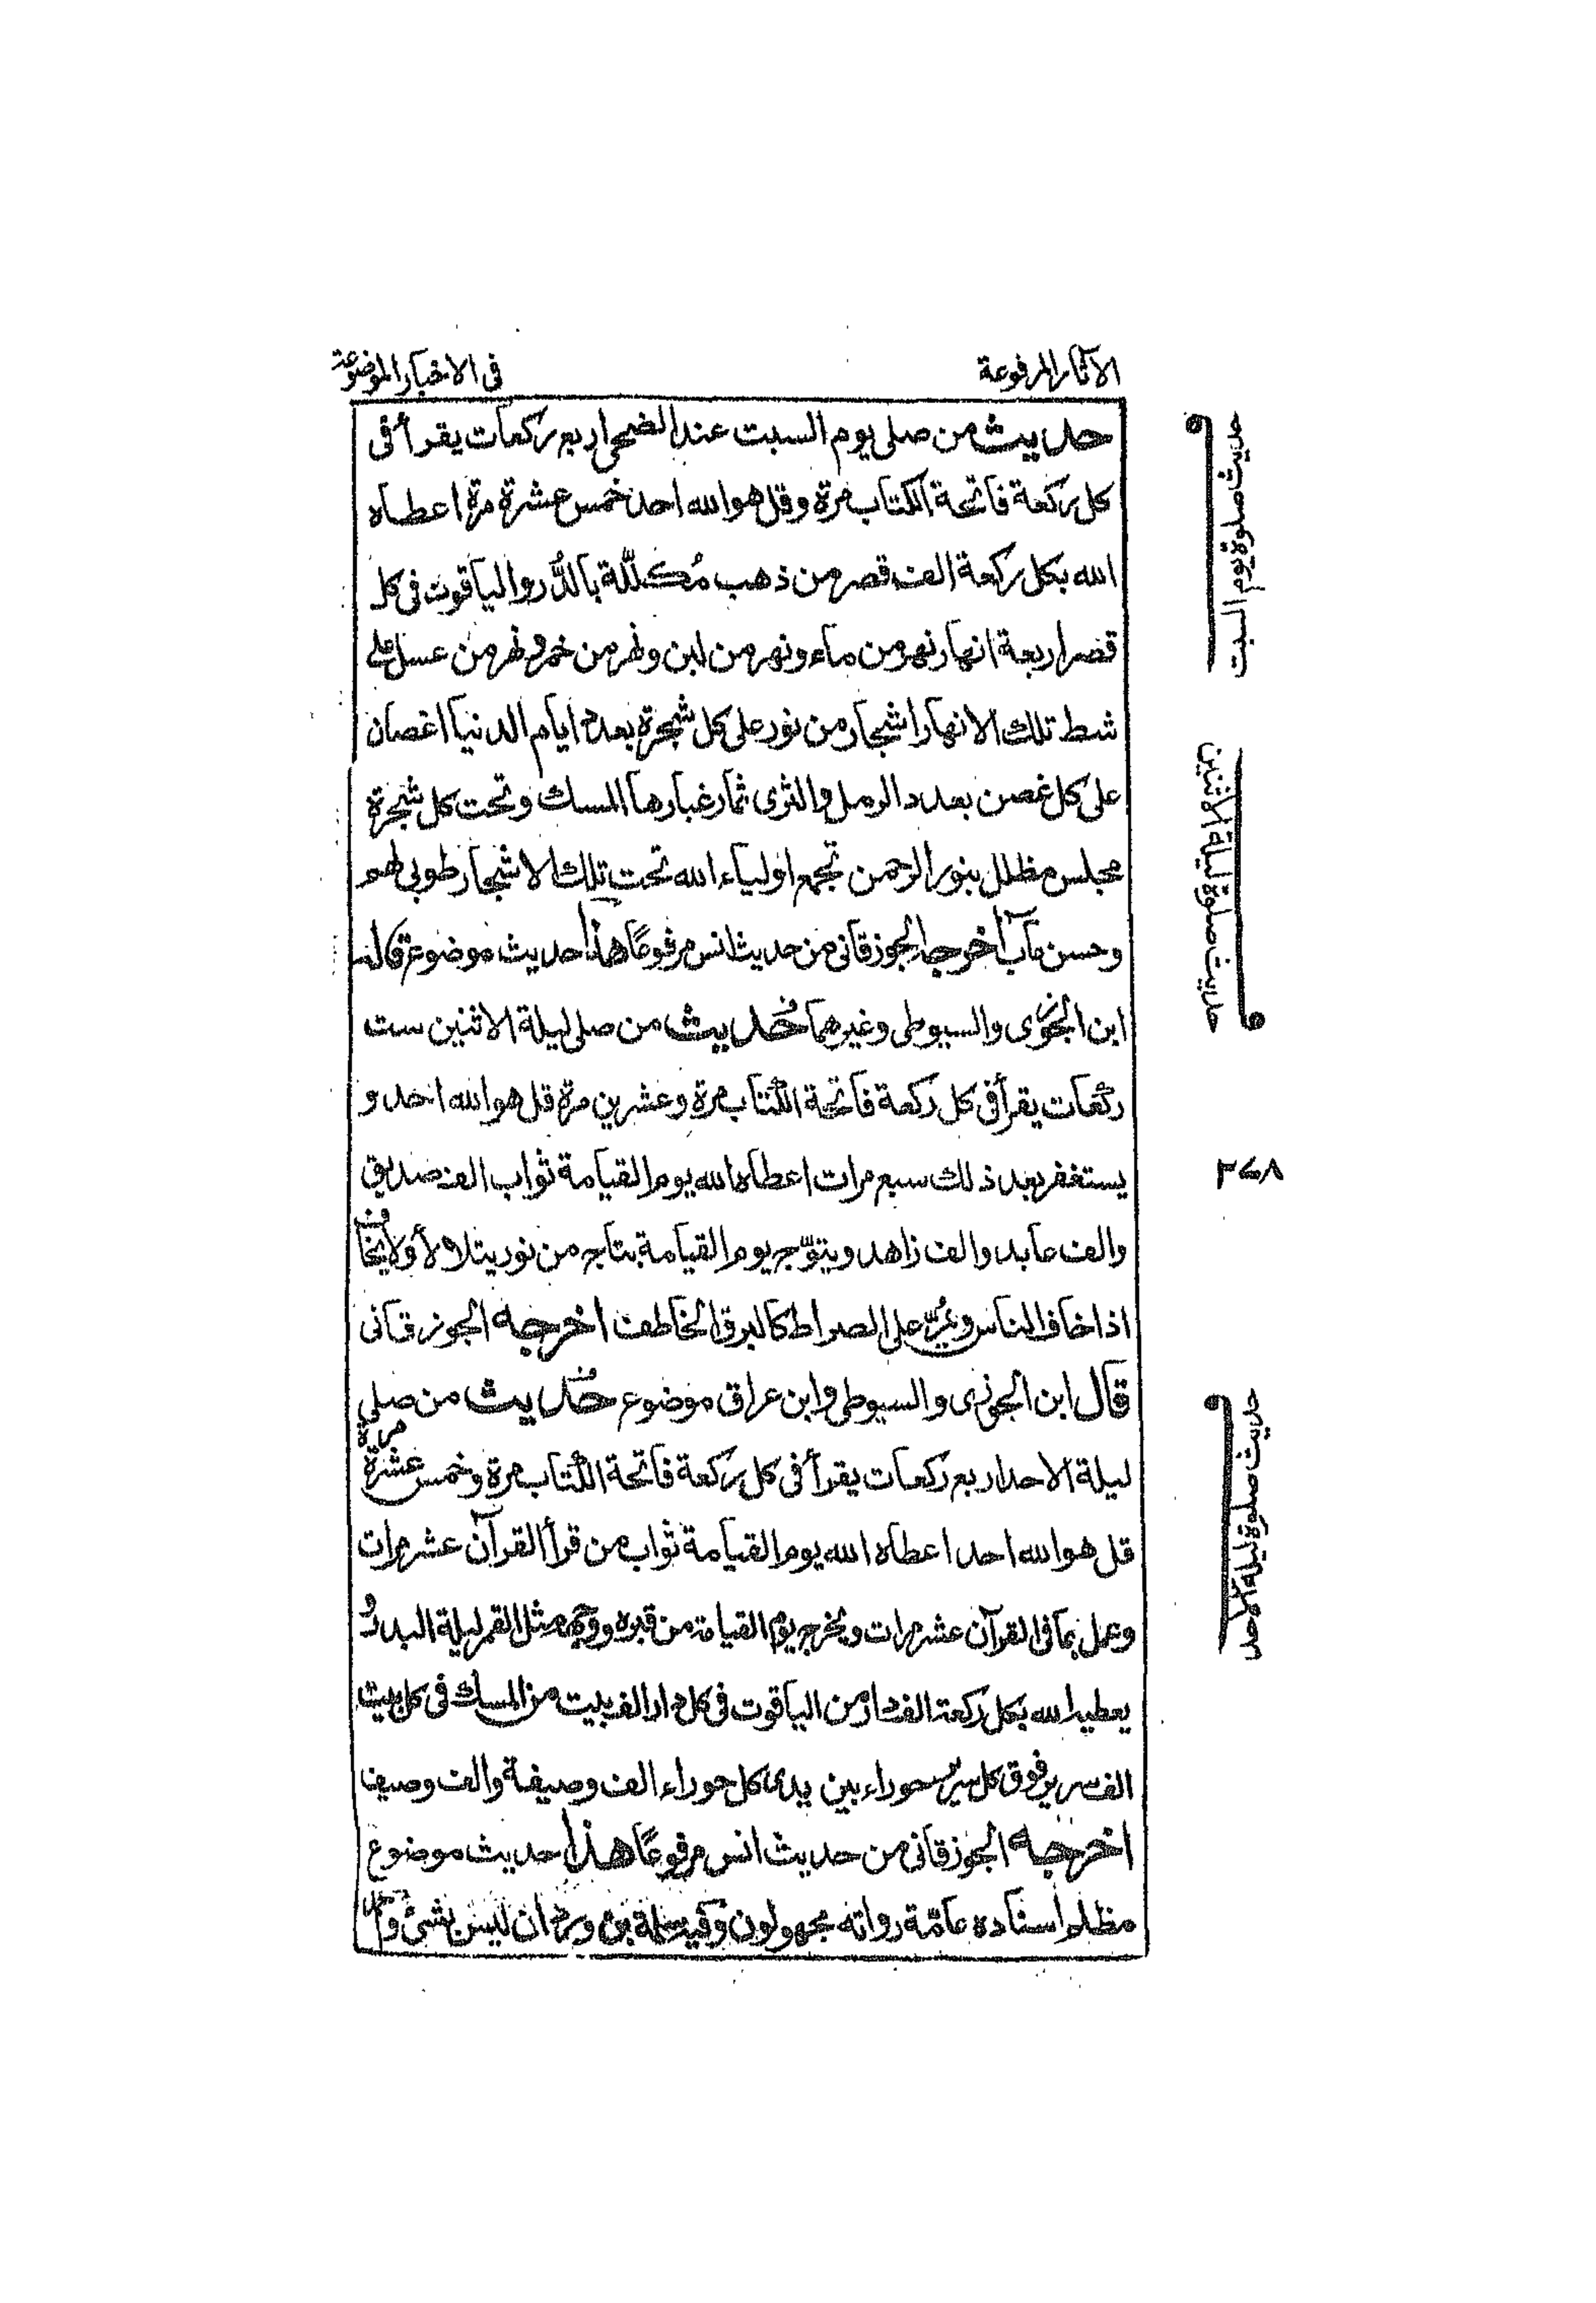 الآثار المرفوعة
فى الاخبار الموضوعة
حديث من صلى يوم السبت عند الضحى اربع ركعات يقرأ فى
كل ركعة فاتحة الكتاب مرة وقل هو الله احد خمس عشرة مرة اعطاه
الله بكل ركعة الف قصر من ذهب مُكلّلة بالدُّر والياقوت فى كل
قصر اربعة انهار نهر من ماء ونهر من لبن ونهر من خمر ونهر من عسل على
شط تلك الانهار اشجار من نور على كل شجرة بعدد ايام الدنيا اغصان
على كل غصن بعدد الرمل والثرى ثمار غبارها المسك وتحت كل شجرة
مجلس مظلل بنور الرحمن تجمع اولياء الله تحت تلك الاشجار طوبى لهم
وحسن مآب اخرجه الجوزقانى من حديث انس مرفوعًا هذا حديث موضوع قاله
ابن الجوزى والسيوطى وغيرهما حديث من صلى ليلة الاثنين ست
ركعات يقرأ فى كل ركعة فاتحة الكتاب مرة وعشرين مرة قل هو الله احد و
يستغفر بعد ذلك سبع مرات اعطاه الله يوم القيامة ثواب الف صديق
والف عابد والف زاهد ويتوّج يوم القيامة بتاج من نور يتلالأ ولا يخاف
اذا خاف الناس ويمُرّ على الصراط كالبرق الخاطف اخرجه الجوزقانى
قال ابن الجوزى والسيوطى وابن عراق موضوع حديث من صلى
ليلة الاحد اربع ركعات يقرأ فى كل ركعة فاتحة الكتاب مرة وخمس عشرة مرة
قل هو الله احد اعطاه الله يوم القيامة ثواب من قرأ القرآن عشر مرات
وعمل بما فى القرآن عشر مرات ويخرج يوم القيامة من قبره ووجهه مثل القمر ليلة البدر و
يعطيه الله بكل ركعة الف دار من الياقوت فى كل دار الف بيت من المسك فى كل بيت
الف سرير فوق كل سرير حوراء بين يدى كل حوراء الف وصيفة والف وصيف
اخرجه الجوزقانى من حديث انس مرفوعًا هذا حديث موضوع
مظلم اسناده عامّة رواته مجهولون وفيه سلمة بن وردان ليس بشئ و
حديث صلوة يوم السبت
حديث صلوة ليلة الاثنين
٣٤٨
حديث صلوة ليلة الاحد